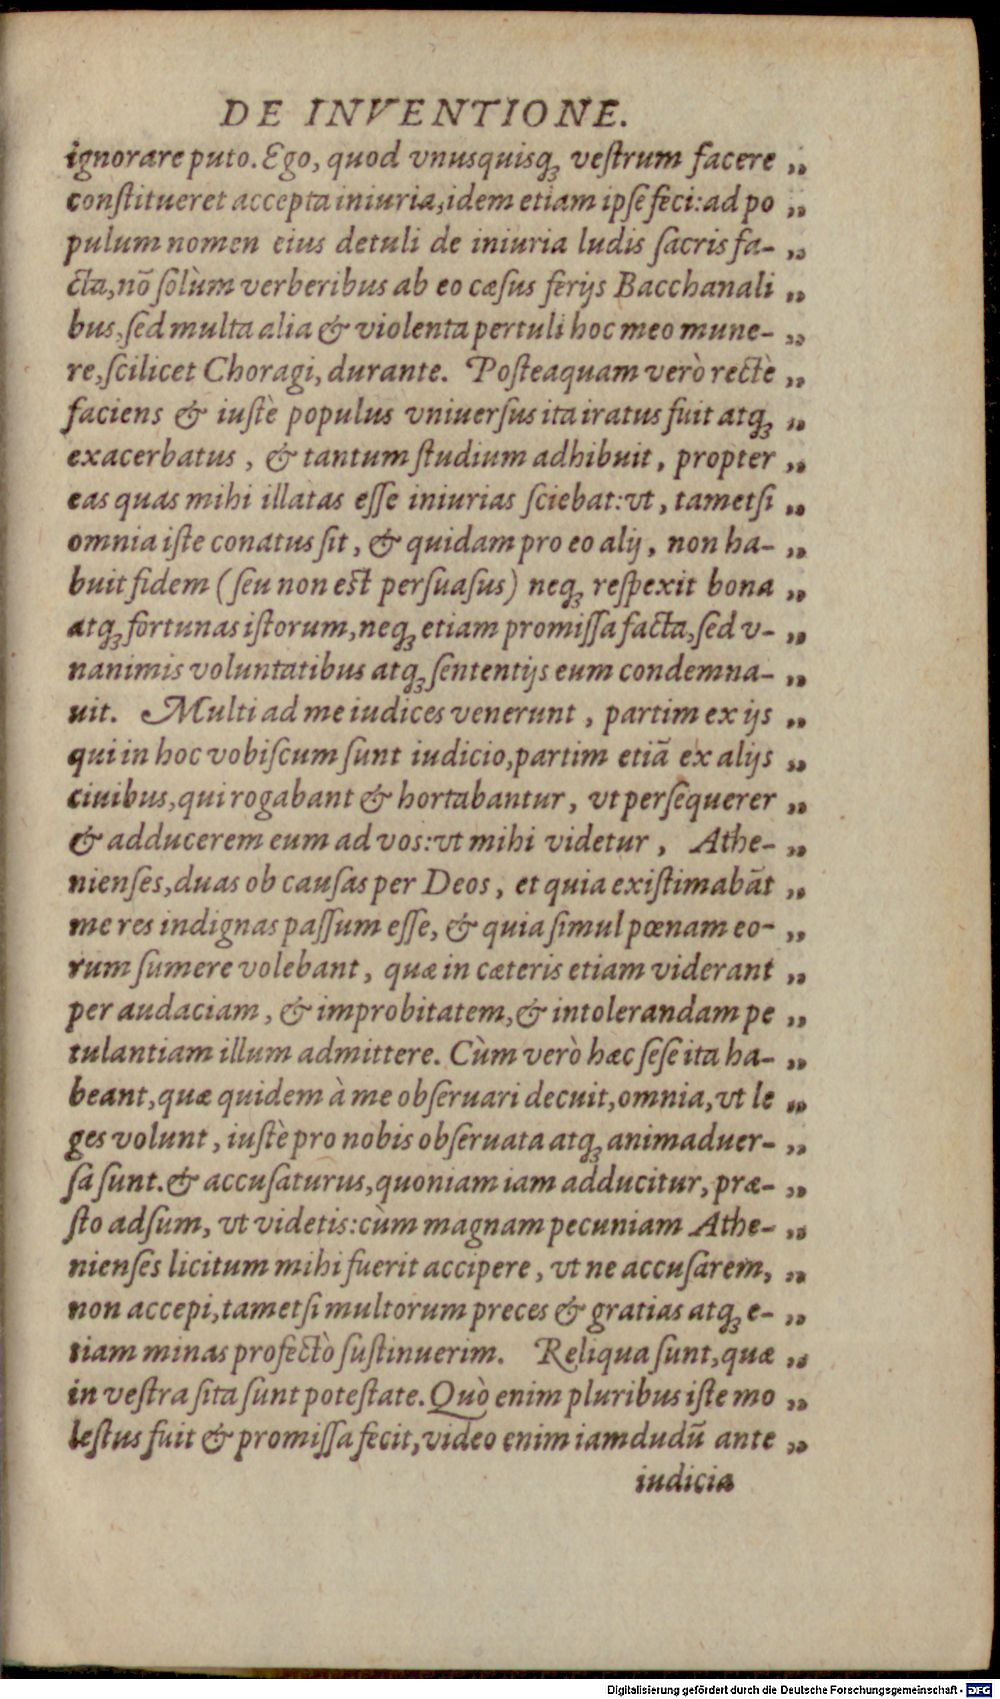 DE INVENTIONE.
ignorare puto. Ego, quod vnusquisqꝫ veſtrum facere „
conſtitueret accepta iniuria, idem etiam ipſe feci: ad po „
pulum nomen eius detuli de iniuria ludis ſacris fa- „
cta, nō ſolùm verberibus ab eo cæſus ferijs Bacchanali „
bus, ſed multa alia & violenta pertuli hoc meo mune- „
re, ſcilicet Choragi, durante. Poſteaquam verò rectè „
faciens & iuſtè populus vniuerſus ita iratus fuit atqꝫ „
exacerbatus, & tantum ſtudium adhibuit, propter „
eas quas mihi illatas eſſe iniurias ſciebat: vt, tametſi „
omnia iſte conatus ſit, & quidam pro eo alij, non ha- „
buit fidem (ſeu non eſt perſuaſus) neqꝫ reſpexit bona „
atqꝫ fortunas iſtorum, neqꝫ etiam promiſſa facta, ſed v- „
nanimis voluntatibus atqꝫ ſententijs eum condemna- „
uit. Multi ad me iudices venerunt, partim ex ijs „
qui in hoc vobiſcum ſunt iudicio, partim etiā ex alijs „
ciuibus, qui rogabant & hortabantur, vt perſequerer „
& adducerem eum ad vos: vt mihi videtur, Athe- „
nienſes, duas ob cauſas per Deos, et quia exiſtimabāt „
me res indignas paſſum eſſe, & quia ſimul pœnam eo- „
rum ſumere volebant, quæ in cæteris etiam viderant „
per audaciam, & improbitatem, & intolerandam pe „
tulantiam illum admittere. Cùm verò hæc ſeſe ita ha- „
beant, quæ quidem à me obſeruari decuit, omnia, vt le „
ges volunt, iuſtè pro nobis obſeruata atqꝫ animaduer- „
ſa ſunt. & accuſaturus, quoniam iam adducitur, præ- „
ſto adſum, vt videtis: cùm magnam pecuniam Athe- „
nienſes licitum mihi fuerit accipere, vt ne accuſarem, „
non accepi, tametſi multorum preces & gratias atqꝫ e- „
tiam minas profectò ſuſtinuerim. Reliqua ſunt, quæ „
in veſtra ſita ſunt poteſtate. Quò enim pluribus iſte mo „
leſtus fuit & promiſſa fecit, video enim iamdudū ante „
iudicia
Digitalisierung gefördert durch die Deutsche Forschungsgemeinschaft - DFG